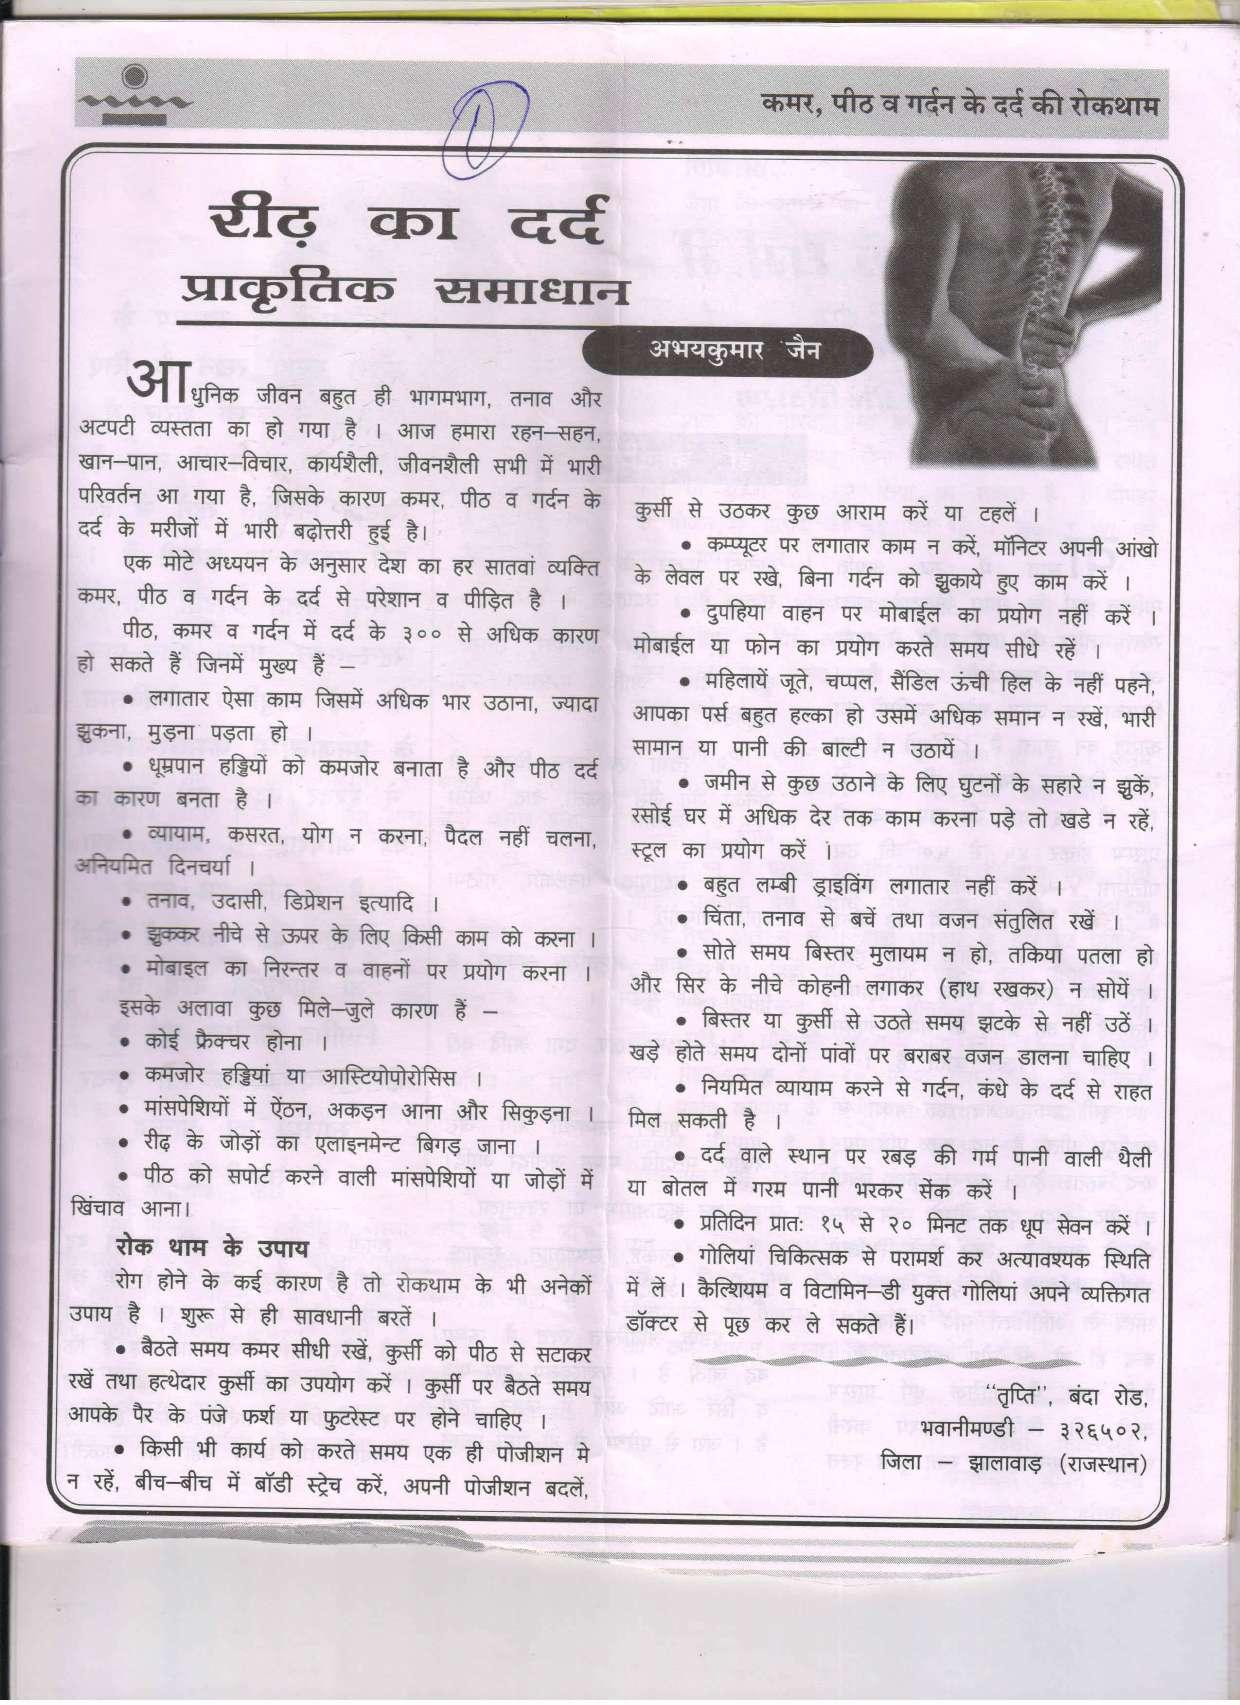 कमर, पीठ व गर्दन के दर्द की रोकथाम
1
रीढ़ का दर्द
प्राकृतिक समाधान
अभयकुमार जैन
आधुनिक जीवन बहुत ही भागमभाग, तनाव और
अटपटी व्यस्तता का हो गया है । आज हमारा रहन–सहन,
खान–पान, आचार–विचार, कार्यशैली, जीवनशैली सभी में भारी
परिवर्तन आ गया है, जिसके कारण कमर, पीठ व गर्दन के
दर्द के मरीजों में भारी बढ़ोत्तरी हुई है।
एक मोटे अध्ययन के अनुसार देश का हर सातवां व्यक्ति
कमर, पीठ व गर्दन के दर्द से परेशान व पीड़ित है ।
पीठ, कमर व गर्दन में दर्द के ३०० से अधिक कारण
हो सकते हैं जिनमें मुख्य हैं –
• लगातार ऐसा काम जिसमें अधिक भार उठाना, ज्यादा
झुकना, मुड़ना पड़ता हो ।
• धूम्रपान हड्डियों को कमजोर बनाता है और पीठ दर्द
का कारण बनता है ।
• व्यायाम, कसरत, योग न करना, पैदल नहीं चलना,
अनियमित दिनचर्या ।
• तनाव, उदासी, डिप्रेशन इत्यादि ।
• झुककर नीचे से ऊपर के लिए किसी काम को करना ।
• मोबाइल का निरन्तर व वाहनों पर प्रयोग करना ।
इसके अलावा कुछ मिले–जुले कारण हैं –
• कोई फ्रैक्चर होना ।
• कमजोर हड्डियां या आस्टियोपोरोसिस ।
• मांसपेशियों में ऐंठन, अकड़न आना और सिकुड़ना ।
• रीढ़ के जोड़ों का एलाइनमेन्ट बिगड़ जाना ।
• पीठ को सपोर्ट करने वाली मांसपेशियों या जोड़ों में
खिंचाव आना।
रोक थाम के उपाय
रोग होने के कई कारण है तो रोकथाम के भी अनेकों
उपाय है । शुरू से ही सावधानी बरतें ।
• बैठते समय कमर सीधी रखें, कुर्सी को पीठ से सटाकर
रखें तथा हत्थेदार कुर्सी का उपयोग करें । कुर्सी पर बैठते समय
आपके पैर के पंजे फर्श या फुटरेस्ट पर होने चाहिए ।
• किसी भी कार्य को करते समय एक ही पोजीशन मे
न रहें, बीच–बीच में बॉडी स्ट्रेच करें, अपनी पोजीशन बदलें,
कुर्सी से उठकर कुछ आराम करें या टहलें ।
• कम्प्यूटर पर लगातार काम न करें, मॉनिटर अपनी आंखो
के लेवल पर रखे, बिना गर्दन को झुकाये हुए काम करें ।
• दुपहिया वाहन पर मोबाईल का प्रयोग नहीं करें ।
मोबाईल या फोन का प्रयोग करते समय सीधे रहें ।
• महिलायें जूते, चप्पल, सैंडिल ऊंची हिल के नहीं पहने,
आपका पर्स बहुत हल्का हो उसमें अधिक समान न रखें, भारी
सामान या पानी की बाल्टी न उठायें ।
• जमीन से कुछ उठाने के लिए घुटनों के सहारे न झुकें,
रसोई घर में अधिक देर तक काम करना पड़े तो खडे न रहें,
स्टूल का प्रयोग करें ।
• बहुत लम्बी ड्राइविंग लगातार नहीं करें ।
• चिंता, तनाव से बचें तथा वजन संतुलित रखें ।
• सोते समय बिस्तर मुलायम न हो, तकिया पतला हो
और सिर के नीचे कोहनी लगाकर (हाथ रखकर) न सोयें ।
• बिस्तर या कुर्सी से उठते समय झटके से नहीं उठें ।
खड़े होते समय दोनों पांवों पर बराबर वजन डालना चाहिए ।
• नियमित व्यायाम करने से गर्दन, कंधे के दर्द से राहत
मिल सकती है ।
• दर्द वाले स्थान पर रबड़ की गर्म पानी वाली थैली
या बोतल में गरम पानी भरकर सेंक करें ।
• प्रतिदिन प्रातः १५ से २० मिनट तक धूप सेवन करें ।
• गोलियां चिकित्सक से परामर्श कर अत्यावश्यक स्थिति
में लें । कैल्शियम व विटामिन–डी युक्त गोलियां अपने व्यक्तिगत
डॉक्टर से पूछ कर ले सकते हैं।
"तृप्ति", बंदा रोड,
भवानीमण्डी – ३२६५०२,
जिला – झालावाड़ (राजस्थान)